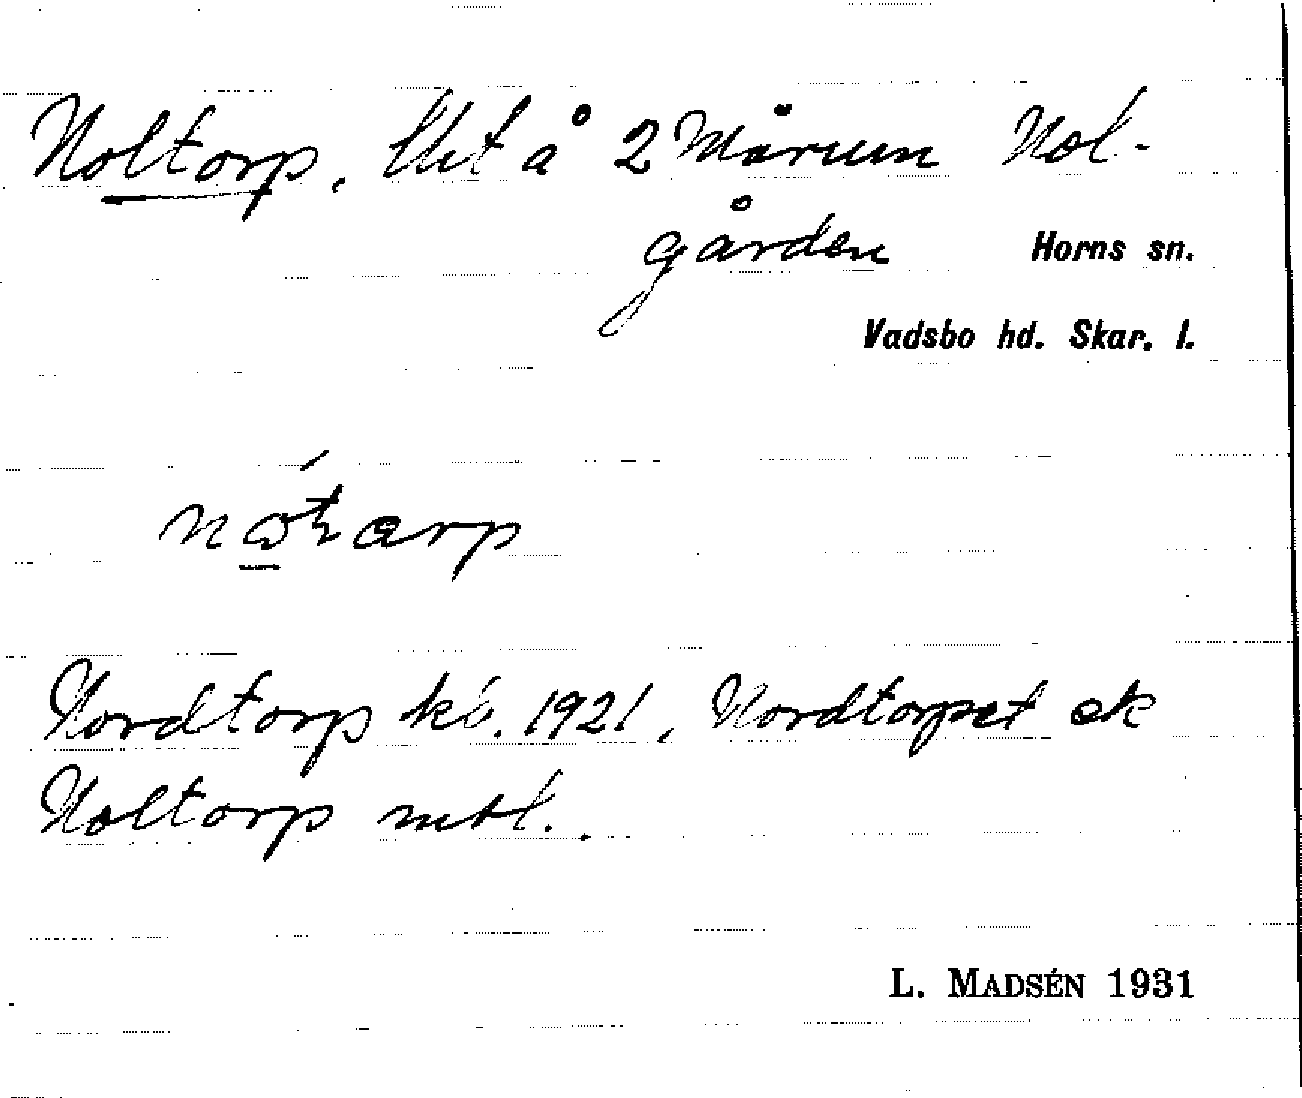 Noltorp, lht å 2 Mårum Nol-
gården Horns sn.
Vadsbo hd. Skar. l.
Nordtorp kb. 1921, Nordtorpet ek
Noltorp mtl.
L. MADSÉN 1931